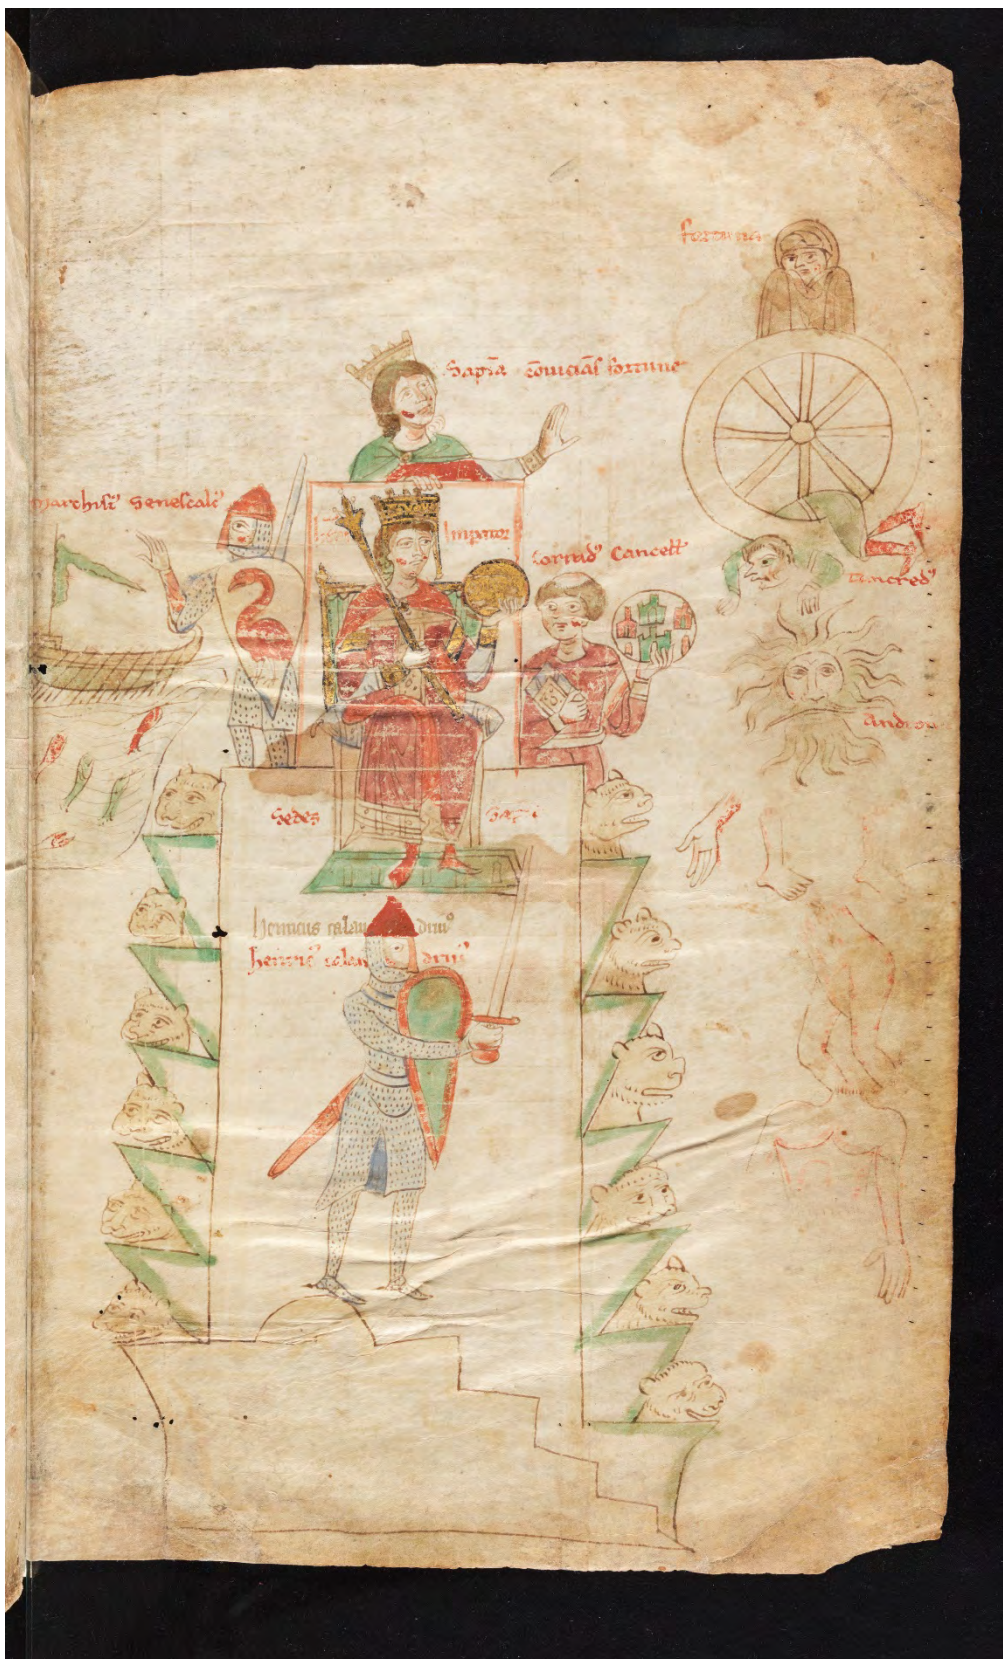 fortuna
Sapīa cōviciās fortune
Marchisi' Senescalc'
Inpator
Corrad' Cancell'
tancred'
Andro
Sedes Sapi
Henricus calan drin'
henric' calan drin'